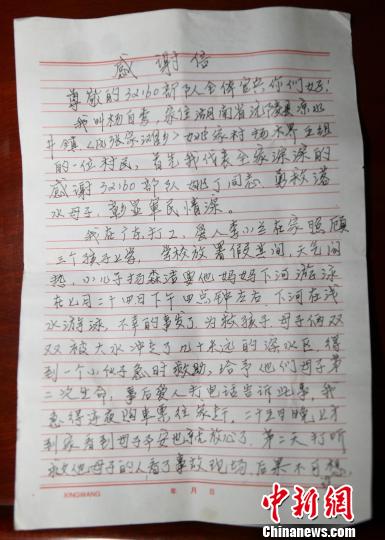 感谢信
尊敬的32160部队全体官兵你们好!
我叫杨自喜,家住湖南省沅陵县凉水
井镇(原张家滩乡)
的一位村民,首先我代表全家深深的
感谢32160部队姚丁同志,勇救落
水母子,彰显军民情深。
我在广东打工,爱人李小兰在家照顾
三个孩子上学,学校放暑假期间,天气闷
热,小儿子杨森涛要他妈妈下河游泳
在七月二十四日下午四点钟左右,下河在浅
水游泳,不幸的事发了,为救孩子,母子俩双
双被大水冲走了几十米远的深水区,得
到一个小伙子急时救助,给予他们母子第
二次生命,事后爱人打电话告诉此事,我
急得连夜购车票往家赶,二十五日晚上才
到家看到母子平安也就放心了,第二天打听
救他母子的人看了事故现场,后果不可想,
XINGWANG
年 月 日
中新网
Chinanews.com